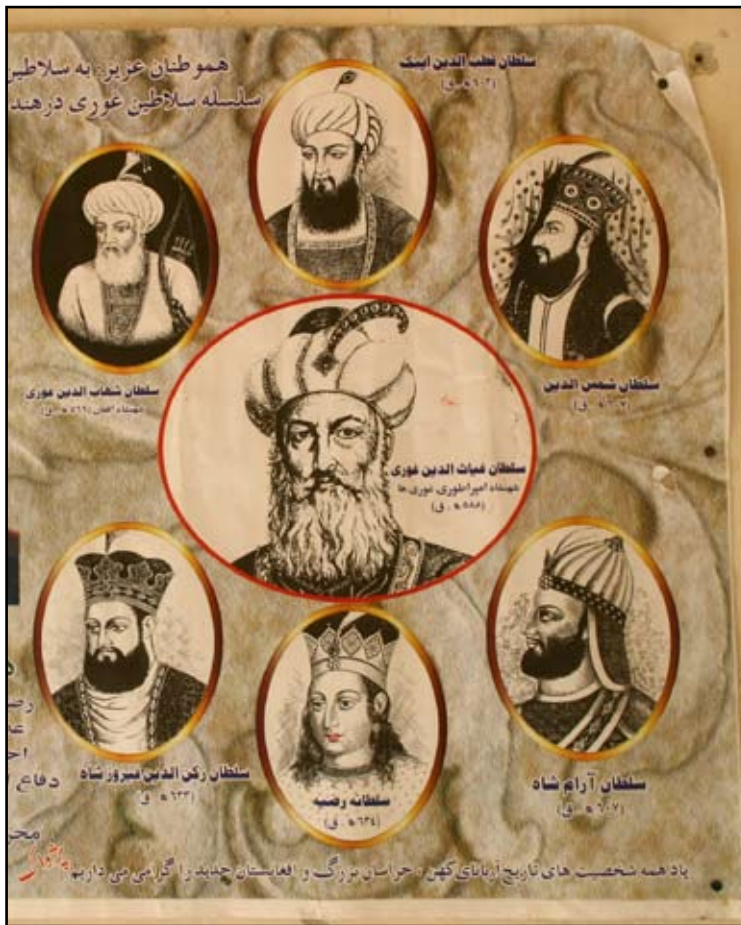 هموطنان عزیز، به سلاطین
سلسله سلاطین غوری درهند
سلطان قطب الدین ایبک
(۶۰۲ ه‍ . ق)
سلطان شهاب الدین غوری
شهنشاه افغان (۵۶۹ ه‍ . ق)
سلطان شمس الدین
(۶۰۷ ه‍ . ق)
سلطان غیاث الدین غوری
شهنشاه امپراطوری غوری ها
(۵۸۸ ه‍ . ق)
سلطان رکن الدین فیروز شاه
(۶۳۳ ه‍ . ق)
سلطانه رضیه
(۶۳۴ ه‍ . ق)
سلطان آرام شاه
(۶۰۷ ه‍ . ق)
دفاع
یاد همه شخصیت های تاریخ آریانای کهن ، خراسان بزرگ و افغانستان جدید را گرامی می داریم